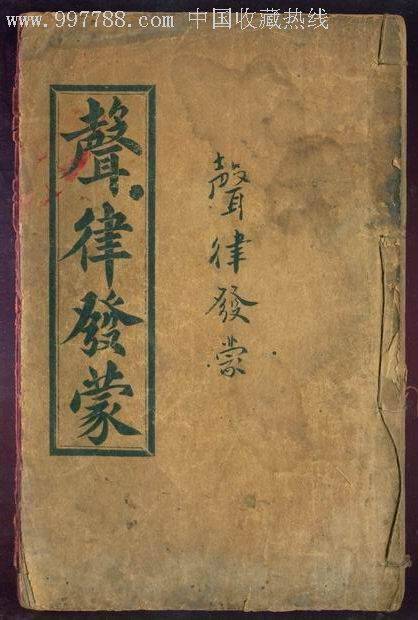 www.997788.com 中国收藏热线
聲律發蒙
聲律發蒙